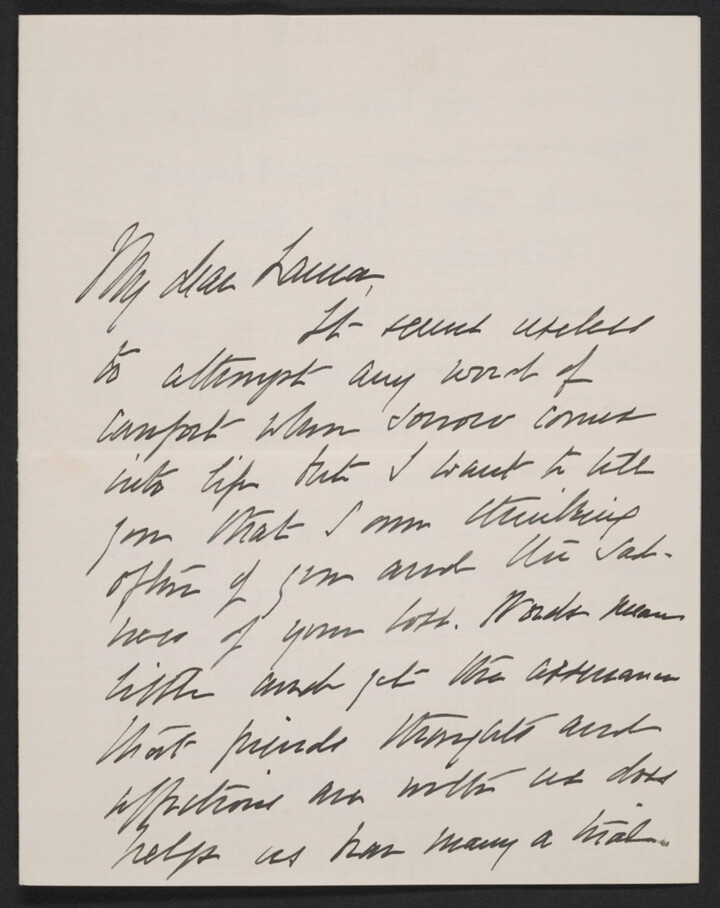 My dear Laura,
It seems useless
to attempt any word of
comfort when sorrow comes
into life but I want to tell
you that I am thinking
often of you and the sad-
ness of your loss. Words mean
little and yet the assurance
that friends thoughts and
affections are with us does
help us bear many a trial.